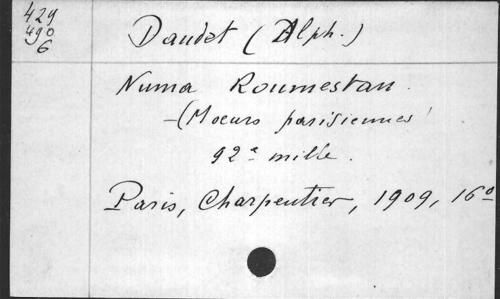 429
490
6
Daudet (Alph.)
Numa Roumestan.
-(Moeurs parisiennes)
92e mille.
Paris, Charpentier, 1909, 16o